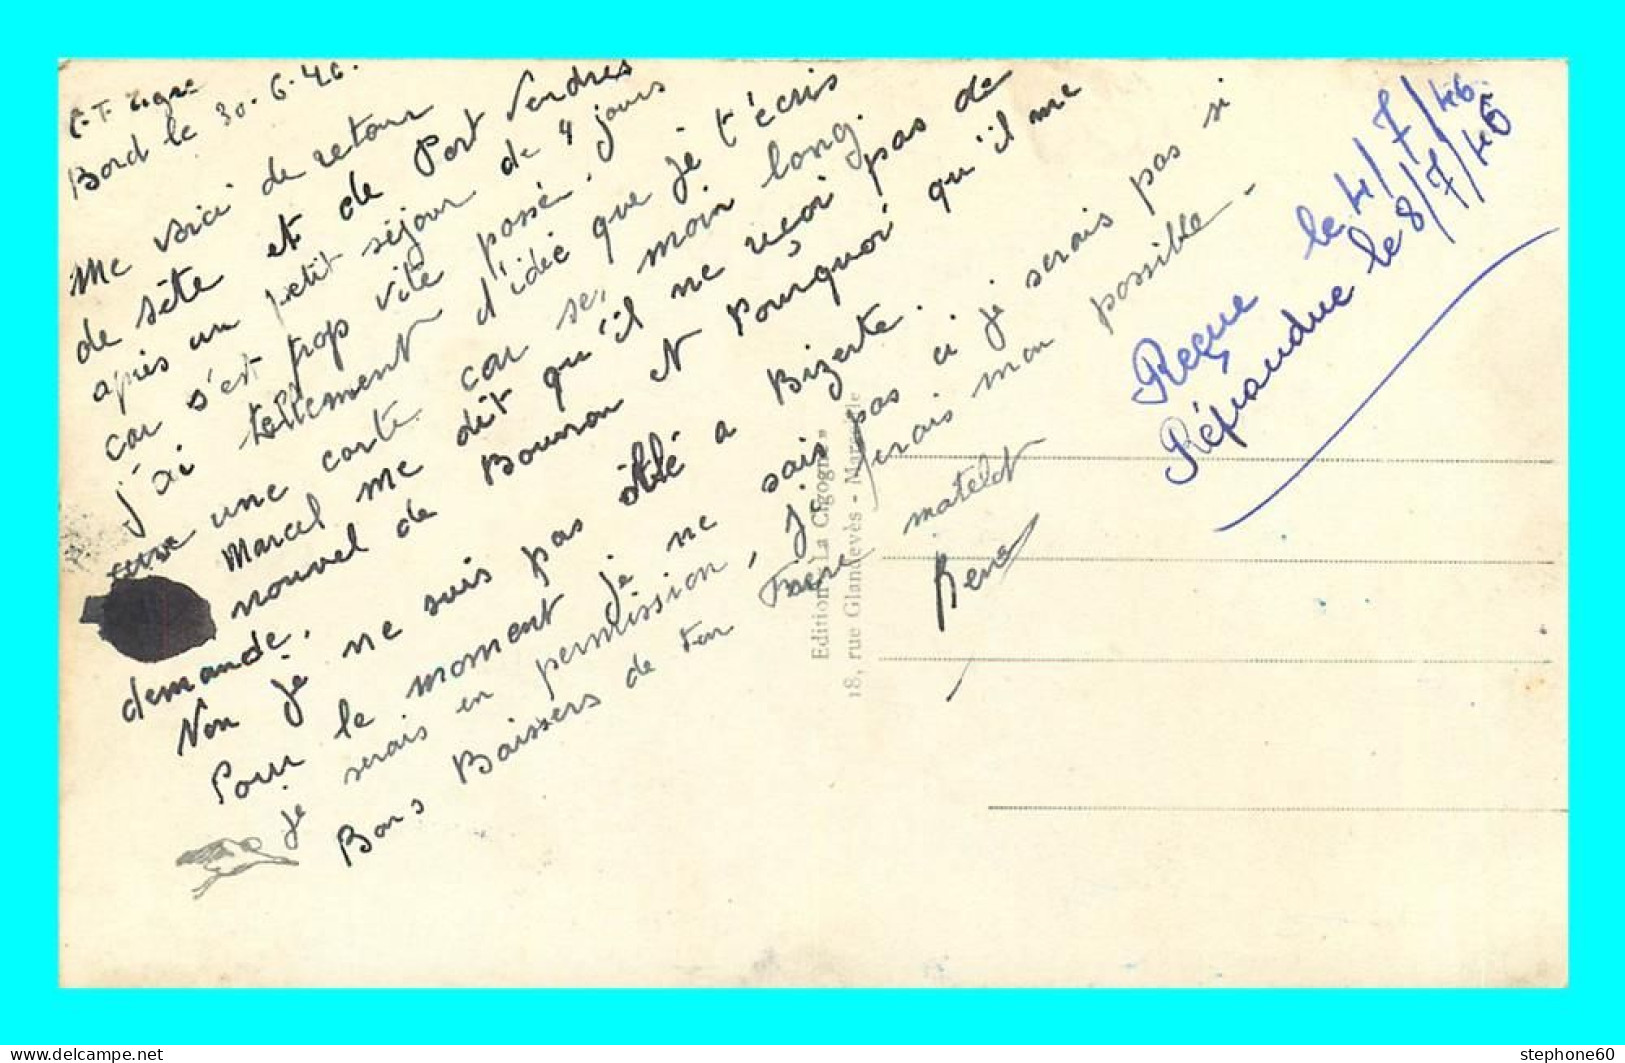 C.T. Tigre
Bord le 30.6.46.
Me voici de retour
de sète et de Port Vendres
après un petit séjour de 4 jours
car s'est trop vite passé.
j'ai tellement d'idée que je t'écris
une carte car se, moin long.
Marcel me dit qu'il ne reçoi pas de
nouvel de Bouron et Pourquoi qu'il me
demande.
Non je ne suis pas été a Bizerte.
Pour le moment je ne sais pas ci je serais pas si
je serais en permission, je ferais mon possible -
Bons Baissers de ton Frère matelot
René
Reçue le 4/7/46
Répandue le 8/7/46
Edition « La Cigogne »
18, rue Glandevès - Marseille
stephone60